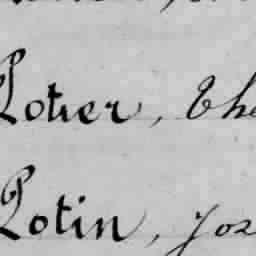 Potier, The
Potin, Jos